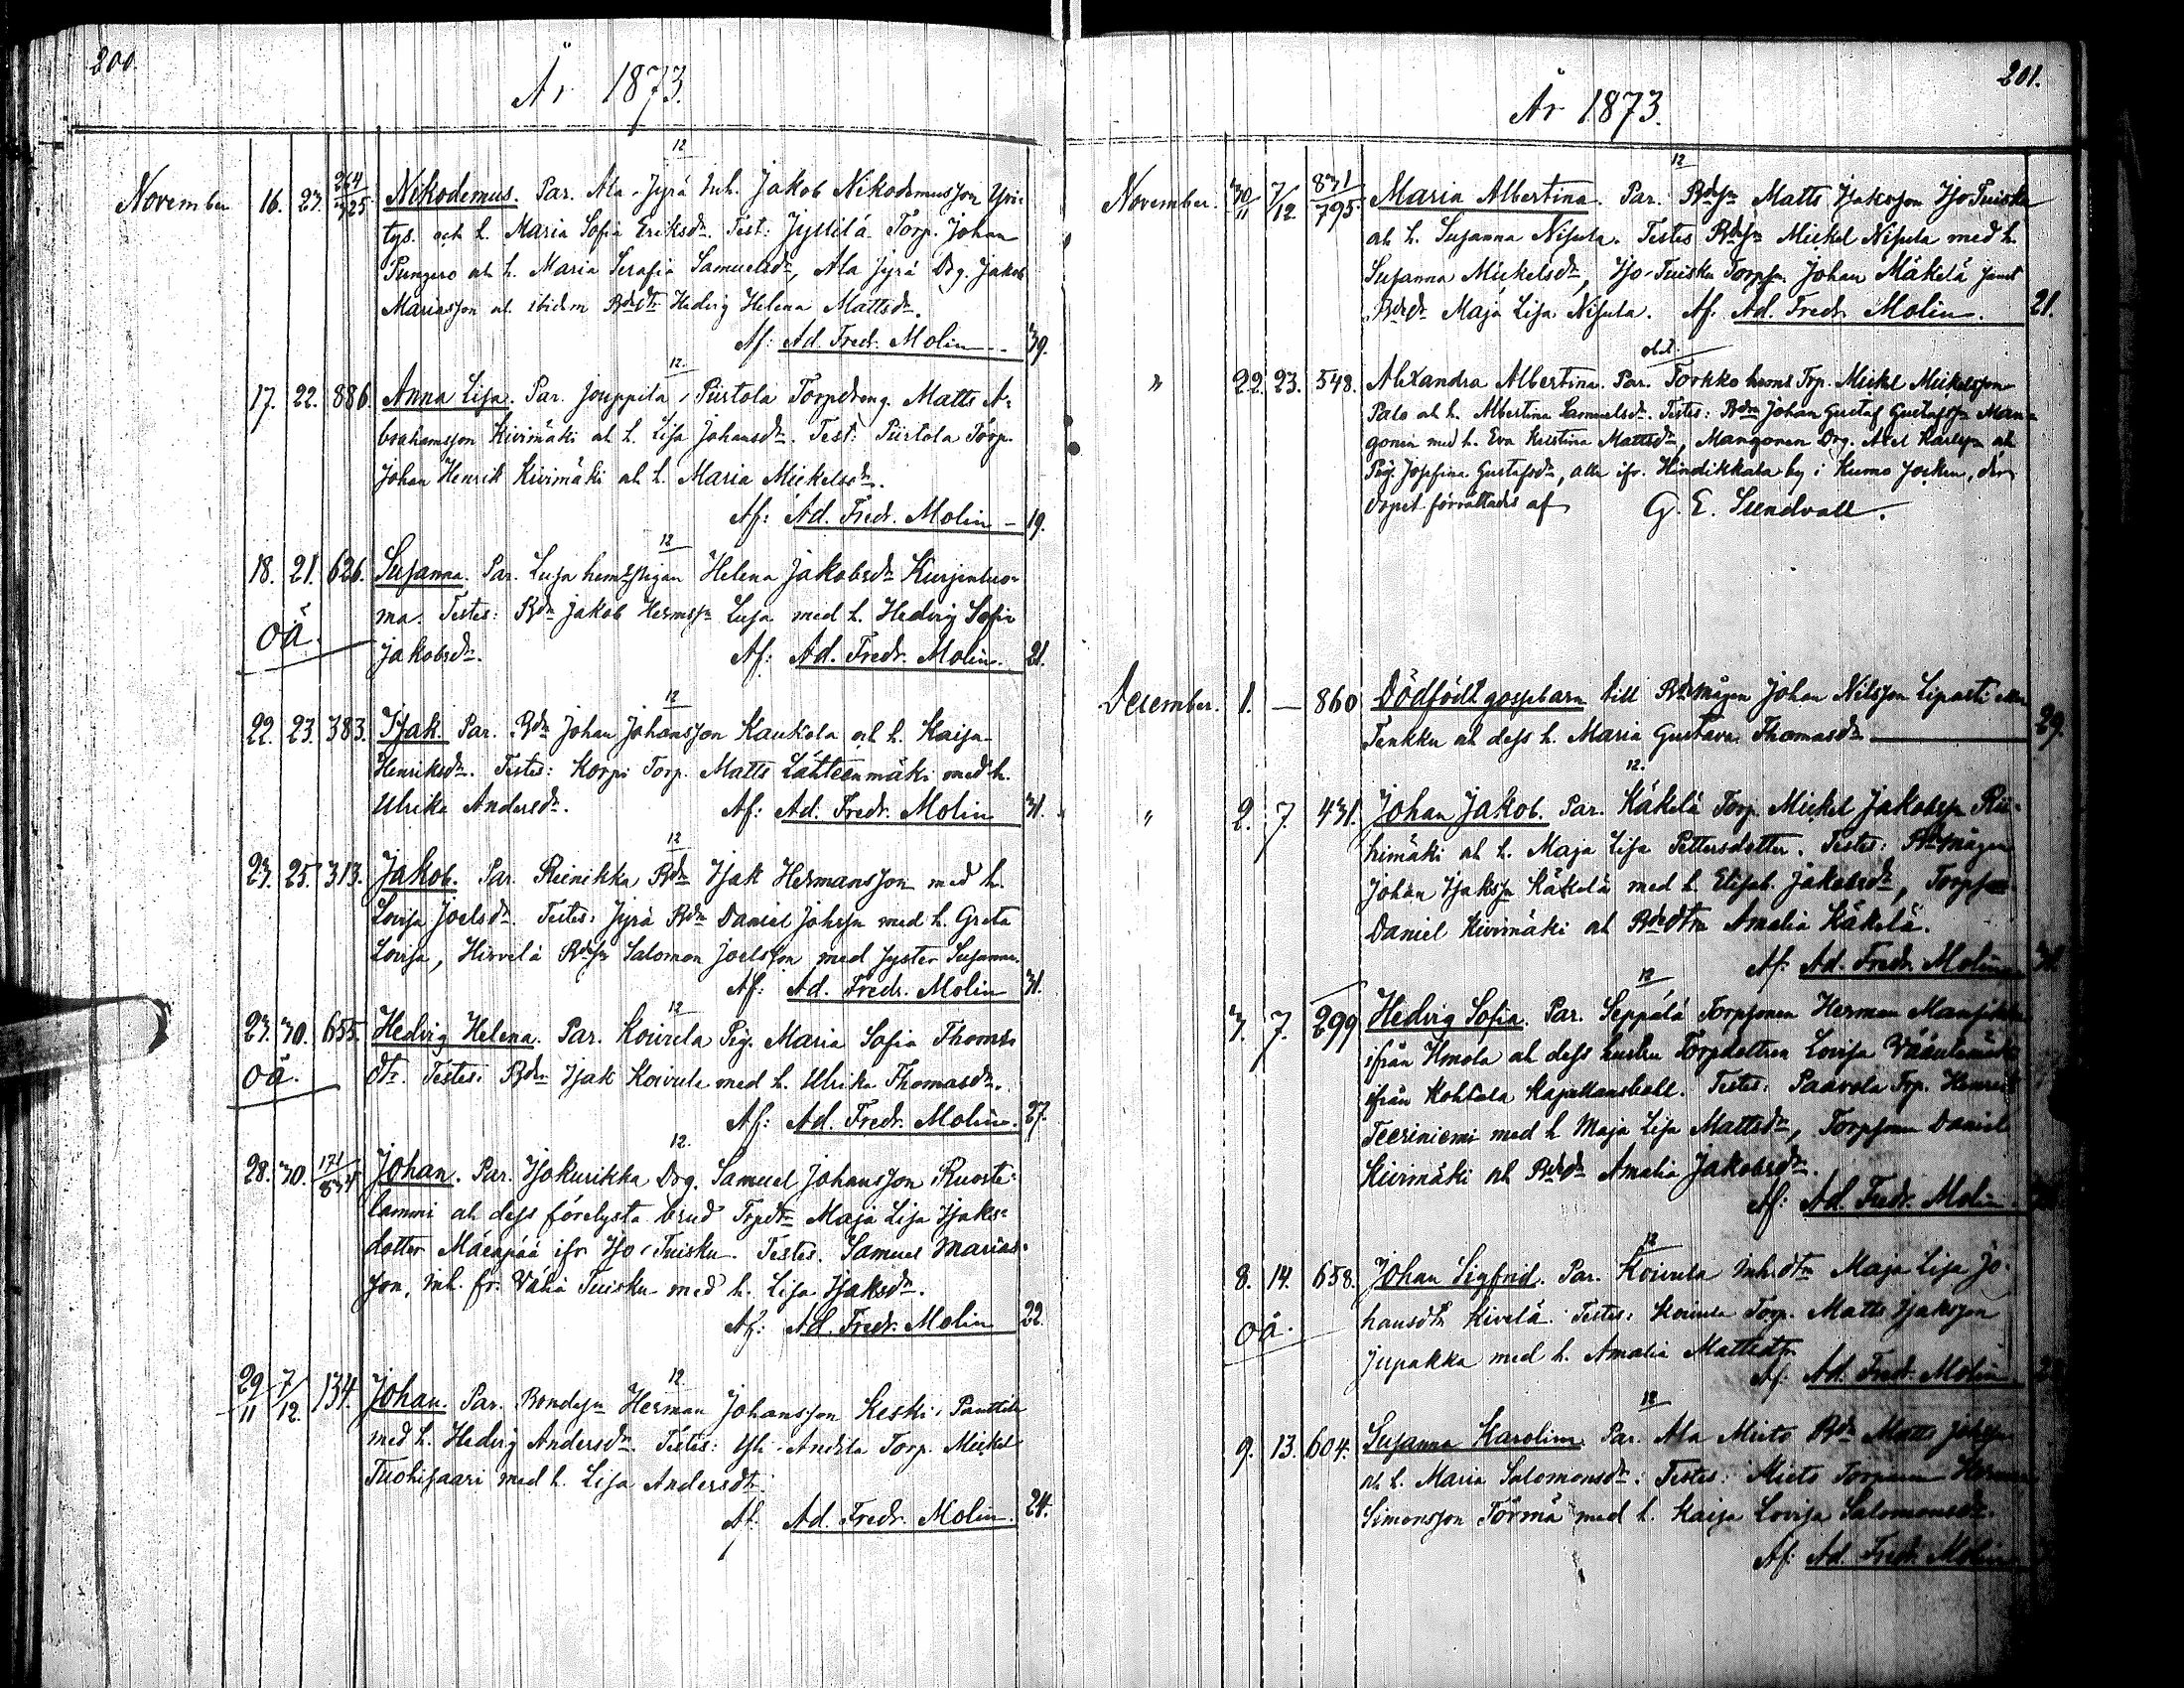 200.
År 1873.
12
November 16. 23. 264/325 Nikodemus. Par. Ala-Jyrä Inh. Jakob Nikodemusson Yri-
tys. och h. Maria Sofia Eriksdr. Test: Jyllilä Torp. Johan
Pungero och h. Maria Serafia Samuelsdr, Ala Jyrä Drg. Jakob
Mariasson och ibidem Bdedtr Hedvig Helena Mattsdr.
Af: Ad. Fredr. Molin 39.
12.
17. 22. 886. Anna Lisa. Par. Jouppila, Piirtola Torpdreng. Matts A-
brahamsson Kivimäki och h. Lisa Johansdr. Test: Piirtola Torp.
Johan Henrik Kivimäki och h. Maria Mickelsdr.
Af: Ad. Fredr. Molin 19.
12
18. 21. 626. Susanna. Par. Luoja hem. Pigan Helena Jakobsdr Kurjenluo-
oä. ma. Testes: Bdn Jakob Hermssn Luoja med h. Hedvig Sofia
Jakobsdr. Af: Ad. Fredr. Molin. 21.
12
22. 23. 383. Isak. Par. Bdn Johan Johansson Kaukola och h. Kaisa
Henriksdr. Testes: Korpi Torp. Matts Lähteenmäki med h.
Ulrika Andersdr. Af: Ad. Fredr. Molin 31.
12
23. 25. 313. Jakob. Par. Reinikka Bdn Isak Hermansson med h.
Lovisa Joelsdr. Testes: Jyrä Bdn Daniel Johssn med h. Greta
Lovisa, Hirvelä Bdesn Salomon Joelsson med syster Susanna.
Af: Ad. Fredr. Molin 31.
12
23. 30. 655. Hedvig Helena. Par. Koivula Pig. Maria Sofia Thomas
oä. dtr. Testes: Bdn Isak Koivula med h. Ulrika Thomasdr.
Af: Ad. Fredr. Molin. 27.
12.
28. 30. 171/834 Johan. Par. Isokurikka Drg. Samuel Johansson Ruoste-
lammi och dess förelysta brud Trpdtr Maja Lisa Isaks-
dotter Mäenpää ifr Iso-Tuisku. Testes. Samuel Marias-
son, inh. fr. Vähä Tuisku med h. Lisa Isaksdr.
Af: Ad. Fredr. Molin 22.
12.
29/11 7/12. 134. Johan. Par. Bondesn Herman Johansson Keski-Panttila
med h. Hedvig Andersdr. Testes: Yli-Andila Torp. Mickel
Tuohisaari med h. Lisa Andersdtr.
Af: Ad. Fredr. Molin. 24.
201.
År 1873.
12
November. 30/11 7/12 831/795. Maria Albertina. Par. Bdesn Matts Isaksson Iso Tuisku
och h. Susanna Nisula. Testes Bdesn Mickel Nisula med h.
Susanna Mickelsdr, Iso-Tuisku Torpsn. Johan Mäkelä samt
Bdedr Maja Lisa Nisula. Af. Ad. Fredr Molin. 21.
" 22. 23. 548. Alexandra Albertina. Par. Torkko heml Trp. Mickel Mickelsson
Palo och h. Albertina Samuelsdr. Testes: Bdn Johan Gustaf Gustafssn Man-
gonen med h. Eva Kristina Mattsdr, Mangonen Drg. Axel Karlssn och
Pig. Josefina Gustafsdr, alla ifr. Hindikkala by i Kumo Socken, der
Dopet förrättades af G. E. Sundvall.
December. 1. — 860 Dödfödt gossebarn till Bdemågen Johan Nilsson Liparti eller
Tenkku och dess h. Maria Gustava Thomasdr 29.
12.
" 2. 7. 431. Johan Jakob. Par. Käkelä Torp. Mickel Jakobssn Rii-
himäki och h. Maja Lisa Pettersdotter. Testes: Bdemågen
Johan Isakssn Käkelä med h. Elisab. Jakobsdr, Torpson
Daniel Kivimäki och Bdedtrn Amalia Käkelä.
Af. Ad. Fredr. Molin
12
3. 7. 299 Hedvig Sofia. Par. Seppälä Torpsonen Herman Mansikka
ifrån Ilmola och dess hustru Torpdottren Lovisa
ifrån Kohtala Kapellansboll. Testes: Paavola Trp. Henrik
Teeriniemi med h Maja Lisa Mattsdr, Torpson Daniel
Kivimäki och Bdedr Amalia Jakobsdr.
Af: Ad. Fredr. Molin
12
8. 14. 658. Johan Sigfrid. Par. Koivula Inh.dtrn Maja Lisa Jo-
oä. hansdtr Kivelä. Testes: Koivula Torp. Matts Isaksson
Jupakka med h. Amalia Mattsdtr.
Af. Ad. Fredr. Molin
12
9. 13. 604. Susanna Karolina. Par. Ala Mieto Bdn Matts Johssn
och h. Maria Salomonsdr. Testes: Mieto Torparen Herman
Simonsson Törmä med h. Kaisa Lovisa Salomonsdr.
Af: Ad. Fredr. Molin